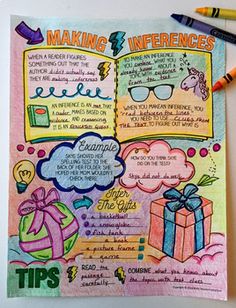 MAKING INFERENCES
WHEN A READER FIGURES
SOMETHING OUT THAT THE
AUTHOR didn't actually say
THEY ARE making inferences
TO MAKE AN INFERENCE
YOU COMBINE what you
already know about a
topic WITH evidence
from the text
AN INFERENCE IS AN idea THAT
A reader MAKES BASED ON
evidence AND reasoning
IT IS AN EDUCATED GUESS
WHEN YOU MAKE AN INFERENCE, YOU
"read between the lines"
YOU NEED TO USE CLUES
FROM THE TEXT TO FIGURE OUT WHAT IS
Example
SKYE SHOVED HER
SPELLING TEST TO THE
BACK OF HER FOLDER. SHE
HOPED HER MOM WOULDN'T
CHECK THERE!
HOW DO YOU THINK SKYE
DID ON THE TEST?
Skye did not do well
Infer
The Gifts
a basketball
a snowglobe
fish tank
a book
a picture frame
a game
TIPS
READ the
passage
carefully
COMBINE what you know about
the topic with text clues